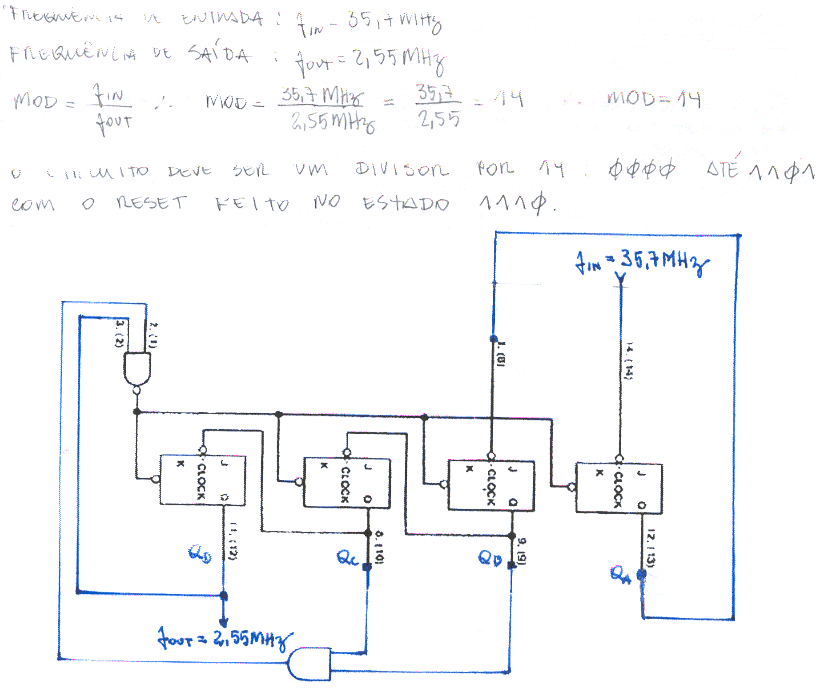 FREQUÊNCIA DE ENTRADA : fIN = 35,7 MHz
FREQUÊNCIA DE SAÍDA : fOUT = 2,55 MHz
MOD = fIN / fOUT ∴ MOD = 35,7 MHz / 2,55 MHz = 35,7 / 2,55 = 14 ∴ MOD = 14
O CIRCUITO DEVE SER UM DIVISOR POR 14 . ØØØØ ATÉ 11Ø1
COM O RESET FEITO NO ESTADO 111Ø.
fIN = 35,7 MHz
3. (2)
2. (1)
1. (8)
14. (14)
J
CLOCK
K
Q
J
CLOCK
K
Q
J
CLOCK
K
Q
J
CLOCK
K
Q
11. (12)
8. (10)
9. (9)
12. (13)
QD
QC
QB
QA
fOUT = 2,55 MHz